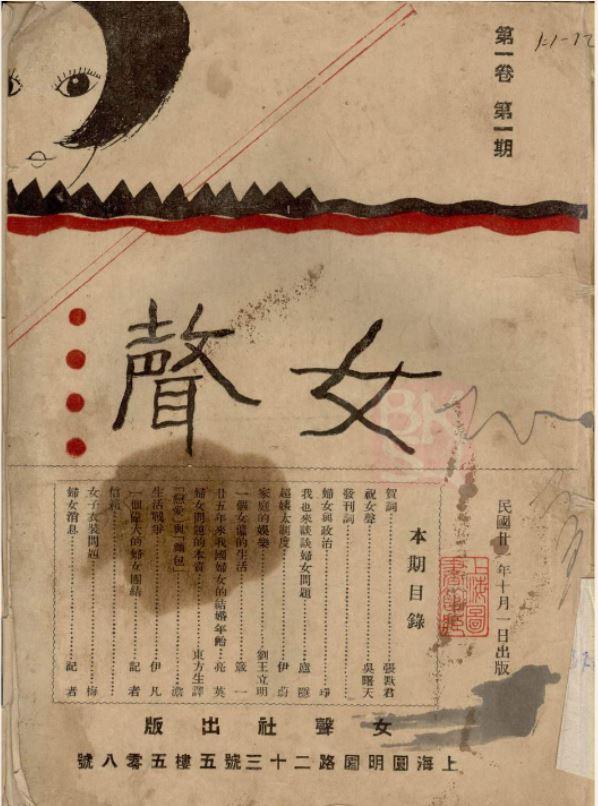 第一卷 第一期
1:1-12
女聲
民國廿一年十月一日出版
本期目錄
賀詞……張默君
祝女聲……吳曙天
發刊詞
婦女與政治……珵
我也來談談婦女問題……廬隱
超姨太制度……伊蔚
家庭的娛樂……劉王立明
一個女僕的生活……箴一
廿五年來我國婦女的結婚年齡……亮英
婦女問題的本質……東方生譯
「戀愛」與「麵包」……澹
生活戰爭……伊凡
一個偉人的婦女團結……記者
信箱
女子衣裝問題……梅
婦女消息……記者
女聲社出版
上海圓明園路二十三號五樓五零八號
上海圖書館藏